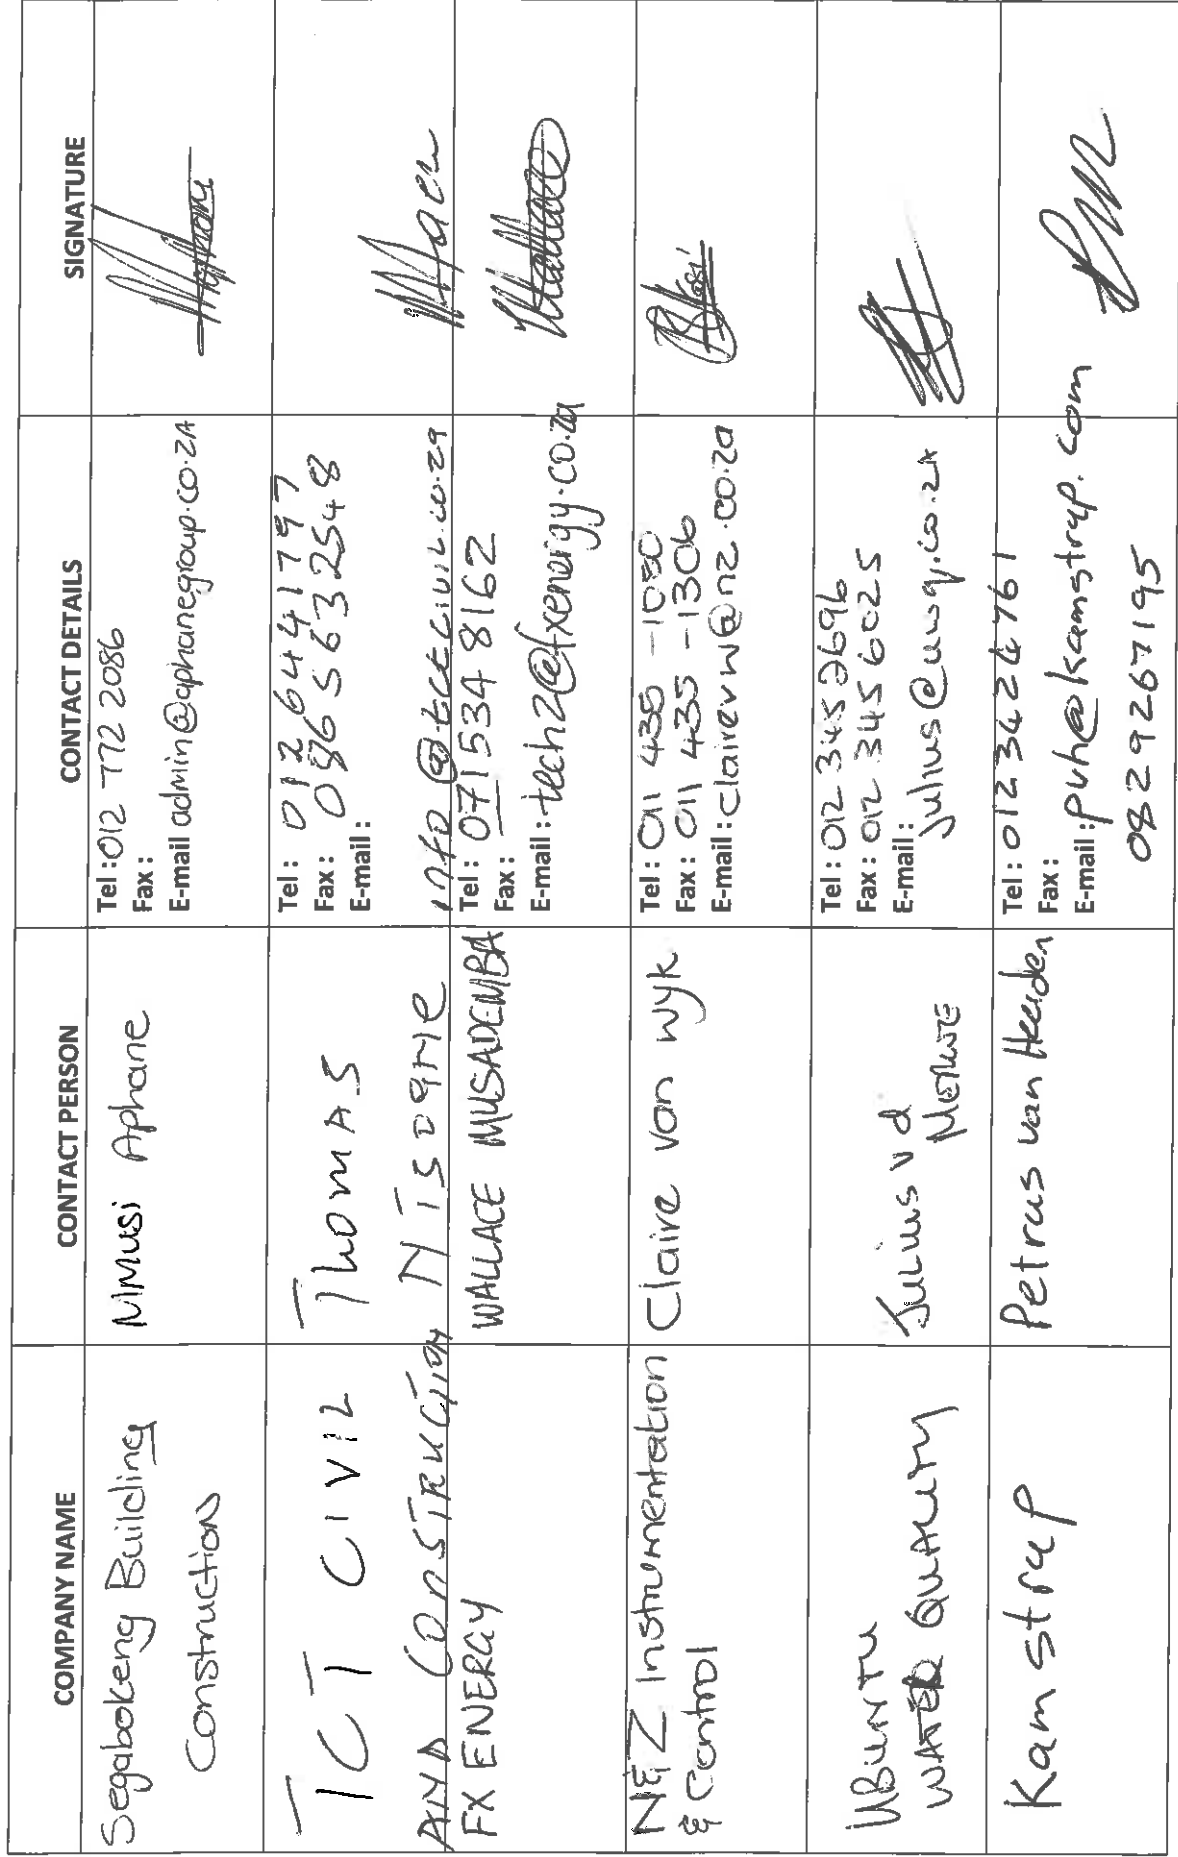 COMPANY NAME
CONTACT PERSON
CONTACT DETAILS
SIGNATURE
Segabokeng Building
Construction
Mmusi Aphane
Tel : 012 772 2086
Fax :
E-mail admin@aphanegroup.co.ZA
TCT CIVIL
AND CONSTRUCTION
Thomas
Tel : 012
Fax : 0865632548
E-mail :
info@tctcivil.co.za
FX ENERGY
WALLACE MUSADEMBA
Tel : 071 534 8162
Fax :
E-mail : tech2@fxenergy.co.za
N&Z Instrumentation
& Control
Claire van wyk
Tel : 011 435 -
Fax : 011 435 - 1306
E-mail : clairevw@nz.co.za
UBUNTU
WATER QUALITY
Julius v d
MERWE
Tel : 012 345 2696
Fax : 012 345 6025
E-mail :
julius@uwq.co.za
Kamstrup
Petrus van Heerden
Tel : 012 342
Fax :
E-mail : pvh@kamstrup.com
082 9267195